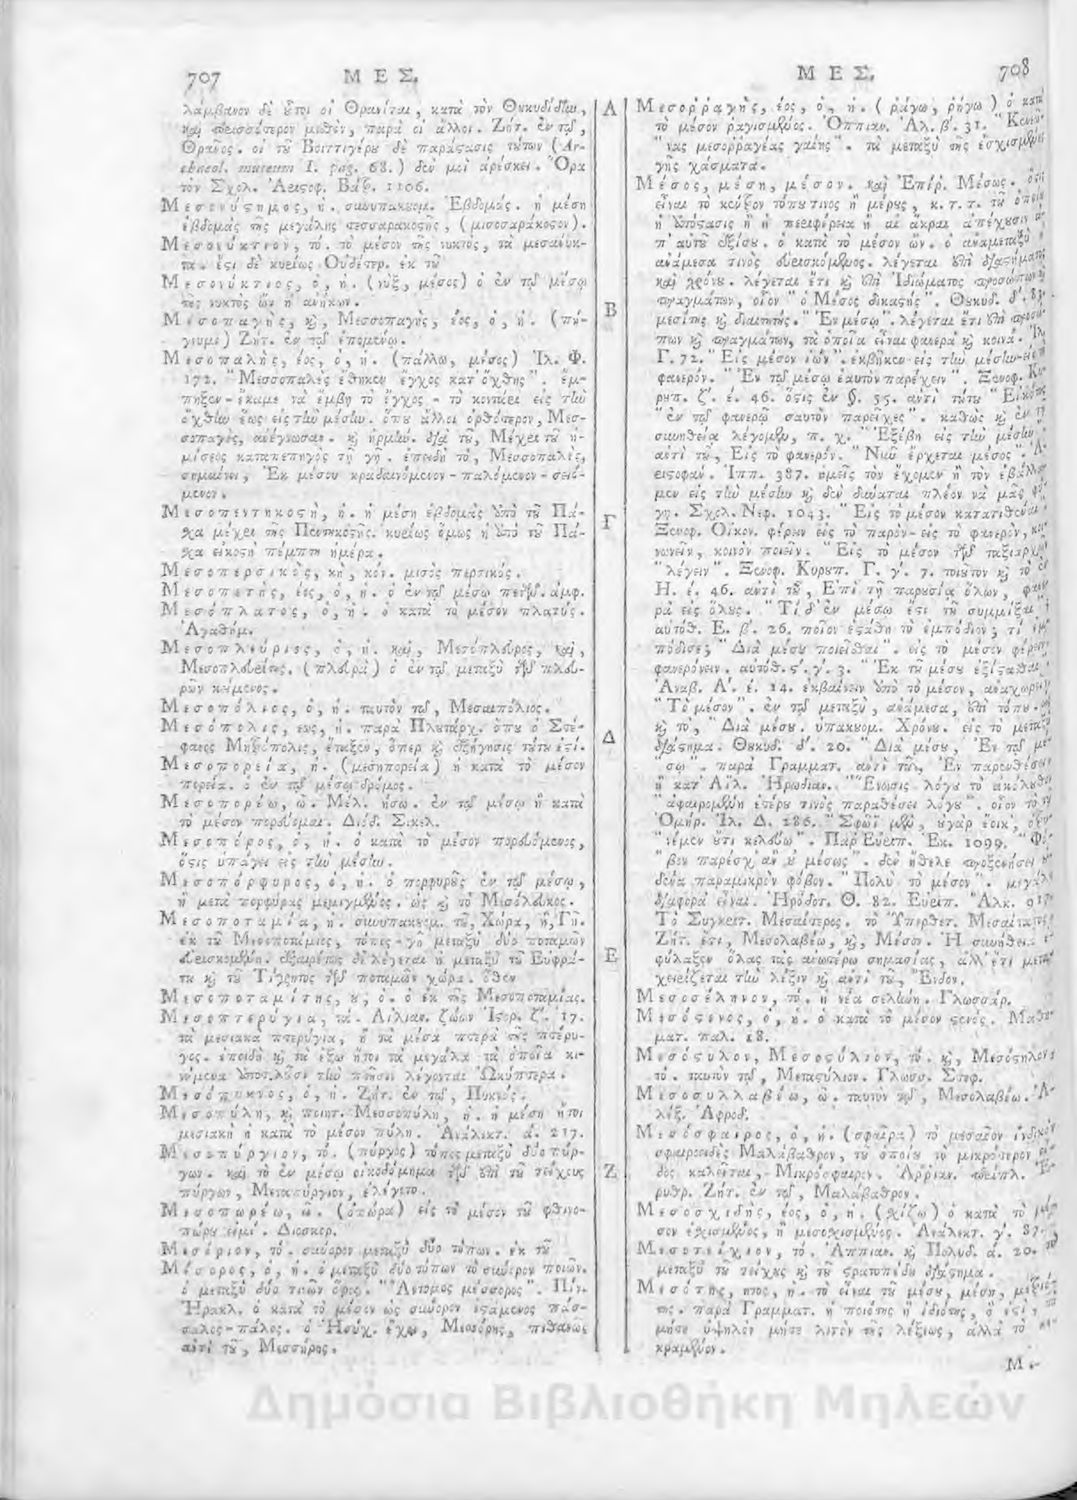 707 ΜΕΣ.
λαμβάνον δὲ ὅτοι οἱ Θρανῖται, κατὰ τὸν Θουκυδίδην,
καὶ περισσότερον μισθὸν, παρὰ οἱ ἄλλοι. Ζήτ. ἐν τῷ,
Θράνος. οἱ τοῦ Βοιττιγέρου δὲ παράστασις τούτων (Ar-
chaeol. museum I. pag. 68.) δὲν μοὶ ἀρέσκει. Ὅρα
τὸν Σχολ. Ἀριστοφ. Βάτρ. 1106.
Μεσονύστιμος, ἡ. συνυπακουομ. Ἑβδομάς. ἡ μέση
ἑβδομὰς τῆς μεγάλης τεσσαρακοστῆς, (μισοσαράκοστον).
Μεσονύκτιον, τό. τὸ μέσον τῆς νυκτὸς, τὰ μεσάνυκ-
τα. ἔστι δὲ κυρίως Οὐδέτερ. ἐκ τοῦ
Μεσονύκτιος, ὁ, ἡ. (νὺξ, μέσος) ὁ ἐν τῷ μέσῳ
τῆς νυκτὸς ὢν ἢ ἀνήκων.
Μεσοπαγὴς, καὶ, Μεσσοπαγὴς, έος, ὁ, ἡ. (πή-
γνυμι) Ζήτ. ἐν τῷ ἑπομένῳ.
Μεσοπαλὴς, έος, ὁ, ἡ. (πάλλω, μέσος) Ἰλ. Φ.
172. "Μεσσοπαλὲς ἔθηκεν ἔγχος κατ' ὄχθης". ἔμ-
πηξεν - ἔκαμε νὰ ἔμβῃ τὸ ἔγχος - τὸ κοντάρι εἰς τὴν
ὄχθην ἕως εἰς τὴν μέσην. ὅπου ἄλλοι ὀρθότερον, Μεσ-
σοπαγὲς, ἀνέγνωσαν. καὶ ἡρμήν. διὰ τοῦ, Μέχρι τοῦ ἡ-
μίσεος καταπεπηγὸς τῇ γῇ. ἐπειδὴ τὸ, Μεσσοπαλὲς,
σημαίνει, Ἐκ μέσου κραδαινόμενον - παλόμενον - σειό-
μενον.
Μεσοπεντηκοστὴ, ἡ. ἡ μέση ἑβδομὰς ἀπὸ τοῦ Πά-
σχα μέχρι τῆς Πεντηκοστῆς. κυρίως ὅμως ἡ ἀπὸ τοῦ Πά-
σχα εἰκοστὴ πέμπτη ἡμέρα.
Μεσοπερσικὸς, κὴ, κόν. μισὸς περσικός.
Μεσοπετὴς, έος, ὁ, ἡ. ὁ ἐν τῷ μέσῳ πετῶν. ἀμφ.
Μεσόπλατος, ὁ, ἡ. ὁ κατὰ τὸ μέσον πλατύς.
Ἀγαθήμ.
Μεσοπλεύριος, ὁ, ἡ. καὶ, Μεσόπλευρος, καὶ,
Μεσοπλευρίτης. (πλευρὰ) ὁ ἐν τῷ μεταξὺ τῶν πλευ-
ρῶν κείμενος.
Μεσοπόλιος, ὁ, ἡ. ταυτὸν τῷ, Μεσαιπόλιος.
Μεσόπολις, εως, ἡ. παρὰ Πλουτάρχ. ὅπου ὁ Στέ-
φανος Μητρόπολις, ἔταξεν, ὅπερ καὶ ἐξήγησις τούτου ἐστί.
Μεσοπορεία, ἡ. (μεσηπορεία) ἡ κατὰ τὸ μέσον
πορεία. ὁ ἐν τῷ μέσῳ δρόμος.
Μεσοπορέω, ῶ. Μελ. ήσω. ἐν τῷ μέσῳ ἢ κατὰ
τὸ μέσον πορεύομαι. Διόδ. Σικελ.
Μεσοπόρος, ὁ, ἡ. ὁ κατὰ τὸ μέσον πορευόμενος,
ὅστις ὑπάγει εἰς τὴν μέσην.
Μεσοπόρφυρος, ὁ, ἡ. ὁ πορφυροῦς ἐν τῷ μέσῳ,
ἢ μετὰ πορφύρας μεμιγμένος. ὡς καὶ τὸ Μισόλευκος.
Μεσοποταμία, ἡ. συνυπακουομ. τοῦ, Χώρα, ἢ, Γῆ.
ἐκ τοῦ Μεσοποτάμιος, τόπος - γῆ μεταξὺ δύο ποταμῶν
εὑρισκομένη. ἐξαιρέτως δὲ λέγεται ἡ μεταξὺ τοῦ Εὐφρά-
του καὶ τοῦ Τίγρητος τῶν ποταμῶν χώρα. ὅθεν
Μεσοποταμίτης, ου, ὁ. ὁ ἐκ τῆς Μεσοποταμίας.
Μεσοπτερύγια, τά. Αἰλιαν. ζώων Ἱστορ. ζ'. 17.
τὰ μεσιακὰ πτερύγια, ἢ τὰ μέσα πτερὰ τῆς πτέρυ-
γος. ἐπειδὴ καὶ τὰ ἔξω ἤτοι τὰ μεγάλα τὰ ὁποῖα κι-
νόμενα ἀποτελοῦσι τὴν πτῆσιν λέγονται Ὠκύπτερα.
Μεσόπυκνος, ὁ, ἡ. Ζήτ. ἐν τῷ, Πυκνός.
Μεσοπύλη, καὶ ποιητ. Μεσσοπύλη, ἡ. ἡ μέση ἤτοι
μεσιακὴ ἢ κατὰ τὸ μέσον πύλη. Ἀνάλεκτ. ά. 217.
Μεσοπύργιον, τό. (πύργος) τόπος μεταξὺ δύο πύρ-
γων. καὶ τὸ ἐν μέσῳ οἰκοδόμημα τῶν ἐπὶ τοῦ τείχους
πύργων, Μεταπύργιον, ἐλέγετο.
Μεσοπωρέω, ῶ. (ὀπώρα) εἰς τὸ μέσον τοῦ φθινο-
πώρου εἰμί. Διοσκορ.
Μεσόριον, τό. σύνορον μεταξὺ δύο τόπων. ἐκ τοῦ
Μέσορος, ὁ, ἡ. ὁ μεταξὺ δύο τόπων τὸ σύνορον ποιῶν.
ὁ μεταξὺ δύο τινῶν ὅρος. "Ἄντομος μέσσορος". Πίν.
Ἡρακλ. ὁ κατὰ τὸ μέσον ὡς σύνορον ἱστάμενος πάσ-
σαλος - πάλος. ὁ Ἡσύχ. ἔχει, Μεσόρης, πιθανῶς
ἀντὶ τοῦ, Μεσσήρης.
Α
Β
Γ
Δ
Ε
Ζ
ΜΕΣ. 708
Μεσορραγὴς, έος, ὁ, ἡ. (ῥάγω, ῥήγω) ὁ κατὰ
τὸ μέσον ῥαγισμένος. Ὀππιαν. Ἁλ. β'. 31.
"νας μεσορραγέας γαίης". τὰ μεταξὺ τῆς ἐσχισμένης
γῆς χάσματα.
Μέσος, μέση, μέσον. καὶ Ἐπίρ. Μέσως. ὅστις
εἶναι τὸ κέντρον τόπου τινὸς ἢ μέρους, κ. τ. τ. τοῦ ὁποίου
ἡ ἀπόστασις ἢ ἡ περιφέρεια ἢ αἱ ἄκραι ἀπέχουσιν ἀ-
π' αὐτοῦ ἐξίσου. ὁ κατὰ τὸ μέσον ὤν. ὁ ἀναμεταξὺ ἢ
ἀνάμεσα τινὸς εὑρισκόμενος. λέγεται ἐπὶ διαστήματος
καὶ χρόνου. λέγεται ἔτι καὶ ἐπὶ Ἰδιώματος προσώπων καὶ
πραγμάτων, οἷον "ὁ Μέσος δικαστής". Θουκυδ. δ'. 83.
μεσίτης καὶ διαιτητής. "Ἐν μέσῳ". λέγεται ἔτι ἐπὶ προσώ-
πων καὶ πραγμάτων, τὰ ὁποῖα εἶναι φανερὰ καὶ κοινά. Ἰλ.
Γ. 72. "Εἰς μέσον ἰών". ἐκβῆκεν εἰς τὴν μέσην - εἰς τὸ
φανερόν. "Ἐν τῷ μέσῳ ἑαυτὸν παρέχειν". Ξενοφ. Κυ-
ρουπ. ζ'. έ. 46. ὅστις ἐν §. 55. ἀντὶ τούτου "Εἰκότως
"ἐν τῷ φανερῷ σαυτὸν παρεῖχες". καθὼς καὶ ἐν τῇ
συνηθείᾳ λέγομεν, π. χ. "Ἐξέβη εἰς τὴν μέσην",
ἀντὶ τοῦ, Εἰς τὸ φανερόν. "Νῦν ἔρχεται μέσος". Ἀ-
ριστοφαν. Ἱππ. 387. ἡμεῖς τὸν ἔχομεν ἢ τὸν ἐβάλλο-
μεν εἰς τὴν μέσην καὶ δὲν δύναται πλέον νὰ μᾶς φύ-
γῃ. Σχολ. Νεφ. 1043. "Εἰς τὸ μέσον κατατιθέναι".
Ξενοφ. Οἰκον. φέρειν εἰς τὸ παρὸν - εἰς τὸ φανερὸν, κοι-
νώνειν, κοινὸν ποιεῖν. "Εἰς τὸ μέσον τῶν ταξιαρχῶν
"λέγειν". Ξενοφ. Κυρουπ. Γ. γ'. 7. τοιοῦτον καὶ τὸ ἐν
Η. έ. 46. ἀντὶ τοῦ, Ἐπὶ τῇ παρουσίᾳ ὅλων, φανε-
ρὰ εἰς ὅλους. "Τί δ' ἐν μέσῳ ἐστὶ τοῦ συμμίξαι".
αὐτόθ. Ε. β'. 26. ποῖον ἐστάθη τὸ ἐμπόδιον; τί ἐμ-
πόδισε; "Διὰ μέσου ποιεῖσθαι". εἰς τὸ μέσον φέρειν -
φανερόνειν. αὐτόθ. ς'. γ'. 3. "Ἐκ τοῦ μέσου ἐξίστασθαι".
Ἀναβ. Α'. έ. 14. ἐκβαίνειν ἀπὸ τὸ μέσον, ἀναχωρεῖν.
"Τὸ μέσον". ἐν τῷ μεταξὺ, ἀνάμεσα, ἐπὶ τόπου. ὡς
καὶ τὸ, "Διὰ μέσου. ὑπακουομ. Χρόνου. εἰς τὸ μεταξὺ
διάστημα. Θουκυδ. δ'. 20. "Διὰ μέσου, Ἐν τῷ μέ-
"σῳ". παρὰ Γραμματ. ἀντὶ τοῦ, Ἐν παρενθέσει.
ἢ κατ' Αἰλ. Ἡρωδιαν. "Ἕνωσις λόγου τὸ ἀκόλουθον
"ἀφαιρουμένη ἑτέρου τινὸς παραθέσει λόγου". οἷον τὸ τοῦ
Ὁμήρ. Ἰλ. Δ. 286. "Σφῶϊ μὲν, οὐ γὰρ ἔοικ', ὀτρυ-
"νέμεν οὔτι κελεύω". Παρ' Εὐριπ. Ἑκ. 1099. "Φό-
"βον παρέσχ' ἂν οὐ μέσως". δὲν ἤθελε προξενήσει οὐ-
δένα παραμικρὸν φόβον. "Πολὺ τὸ μέσον". μεγάλη
διαφορὰ εἶναι. Ἡρόδοτ. Θ. 82. Εὐριπ. Ἀλκ. 917.
Τὸ Συγκριτ. Μεσαίτερος. τὸ Ὑπερθετ. Μεσαίτατος.
Ζήτ. ἔτι, Μεσολαβέω, καὶ, Μέσοι. Ἡ συνήθεια ἐ-
φύλαξεν ὅλας τὰς ἀνωτέρω σημασίας, ἀλλ' ἔτι μετα-
χειρίζεται τὴν λέξιν καὶ ἀντὶ τοῦ, Ἔνδον.
Μεσοσέληνον, τό. ἡ νέα σελήνη. Γλωσσάρ.
Μεσόστενος, ὁ, ἡ. ὁ κατὰ τὸ μέσον στενός. Μαθη-
ματ. παλ. 18.
Μεσόστυλον, Μεσοστύλιον, τό. καὶ, Μεσόστηλον,
τό. ταυτὸν τῷ, Μεταστύλιον. Γλωσσ. Στεφ.
Μεσοσυλλαβέω, ῶ. ταυτὸν τῷ, Μεσολαβέω. Ἀ-
λέξ. Ἀφροδ.
Μεσόσφαιρος, ὁ, ἡ. (σφαῖρα) τὸ μεσαῖον ἰνδικὸν
σφαιροειδὲς Μαλάβαθρον, τοῦ ὁποίου τὸ μικρότερον εἶ-
δος καλεῖται, Μικρόσφαιρον. Ἀρριαν. περιπλ. Ἐ-
ρυθρ. Ζήτ. ἐν τῷ, Μαλάβαθρον.
Μεσοσχιδὴς, έος, ὁ, ἡ. (σχίζω) ὁ κατὰ τὸ μέ-
σον ἐσχισμένος, ἢ μεσοσχισμένος. Ἀνάλεκτ. γ'. 87.
Μεσοτείχιον, τό. Ἀππιαν. καὶ Πολυδ. ά. 20. τὸ
μεταξὺ τοῦ τείχους καὶ τοῦ στρατοπέδου διάστημα.
Μεσότης, ητος, ἡ. τὸ εἶναι τοῦ μέσου, μέση, μεσιό-
της. παρὰ Γραμματ. ἡ ποιότης ἢ ἰδιότης, ὅ ἐστι,
μήτε ὑψηλὸν μήτε λιτὸν τῆς λέξεως, ἀλλὰ τὸ κε-
κραμένον.
Μ..-
Δημόσια Βιβλιοθήκη Μηλεών